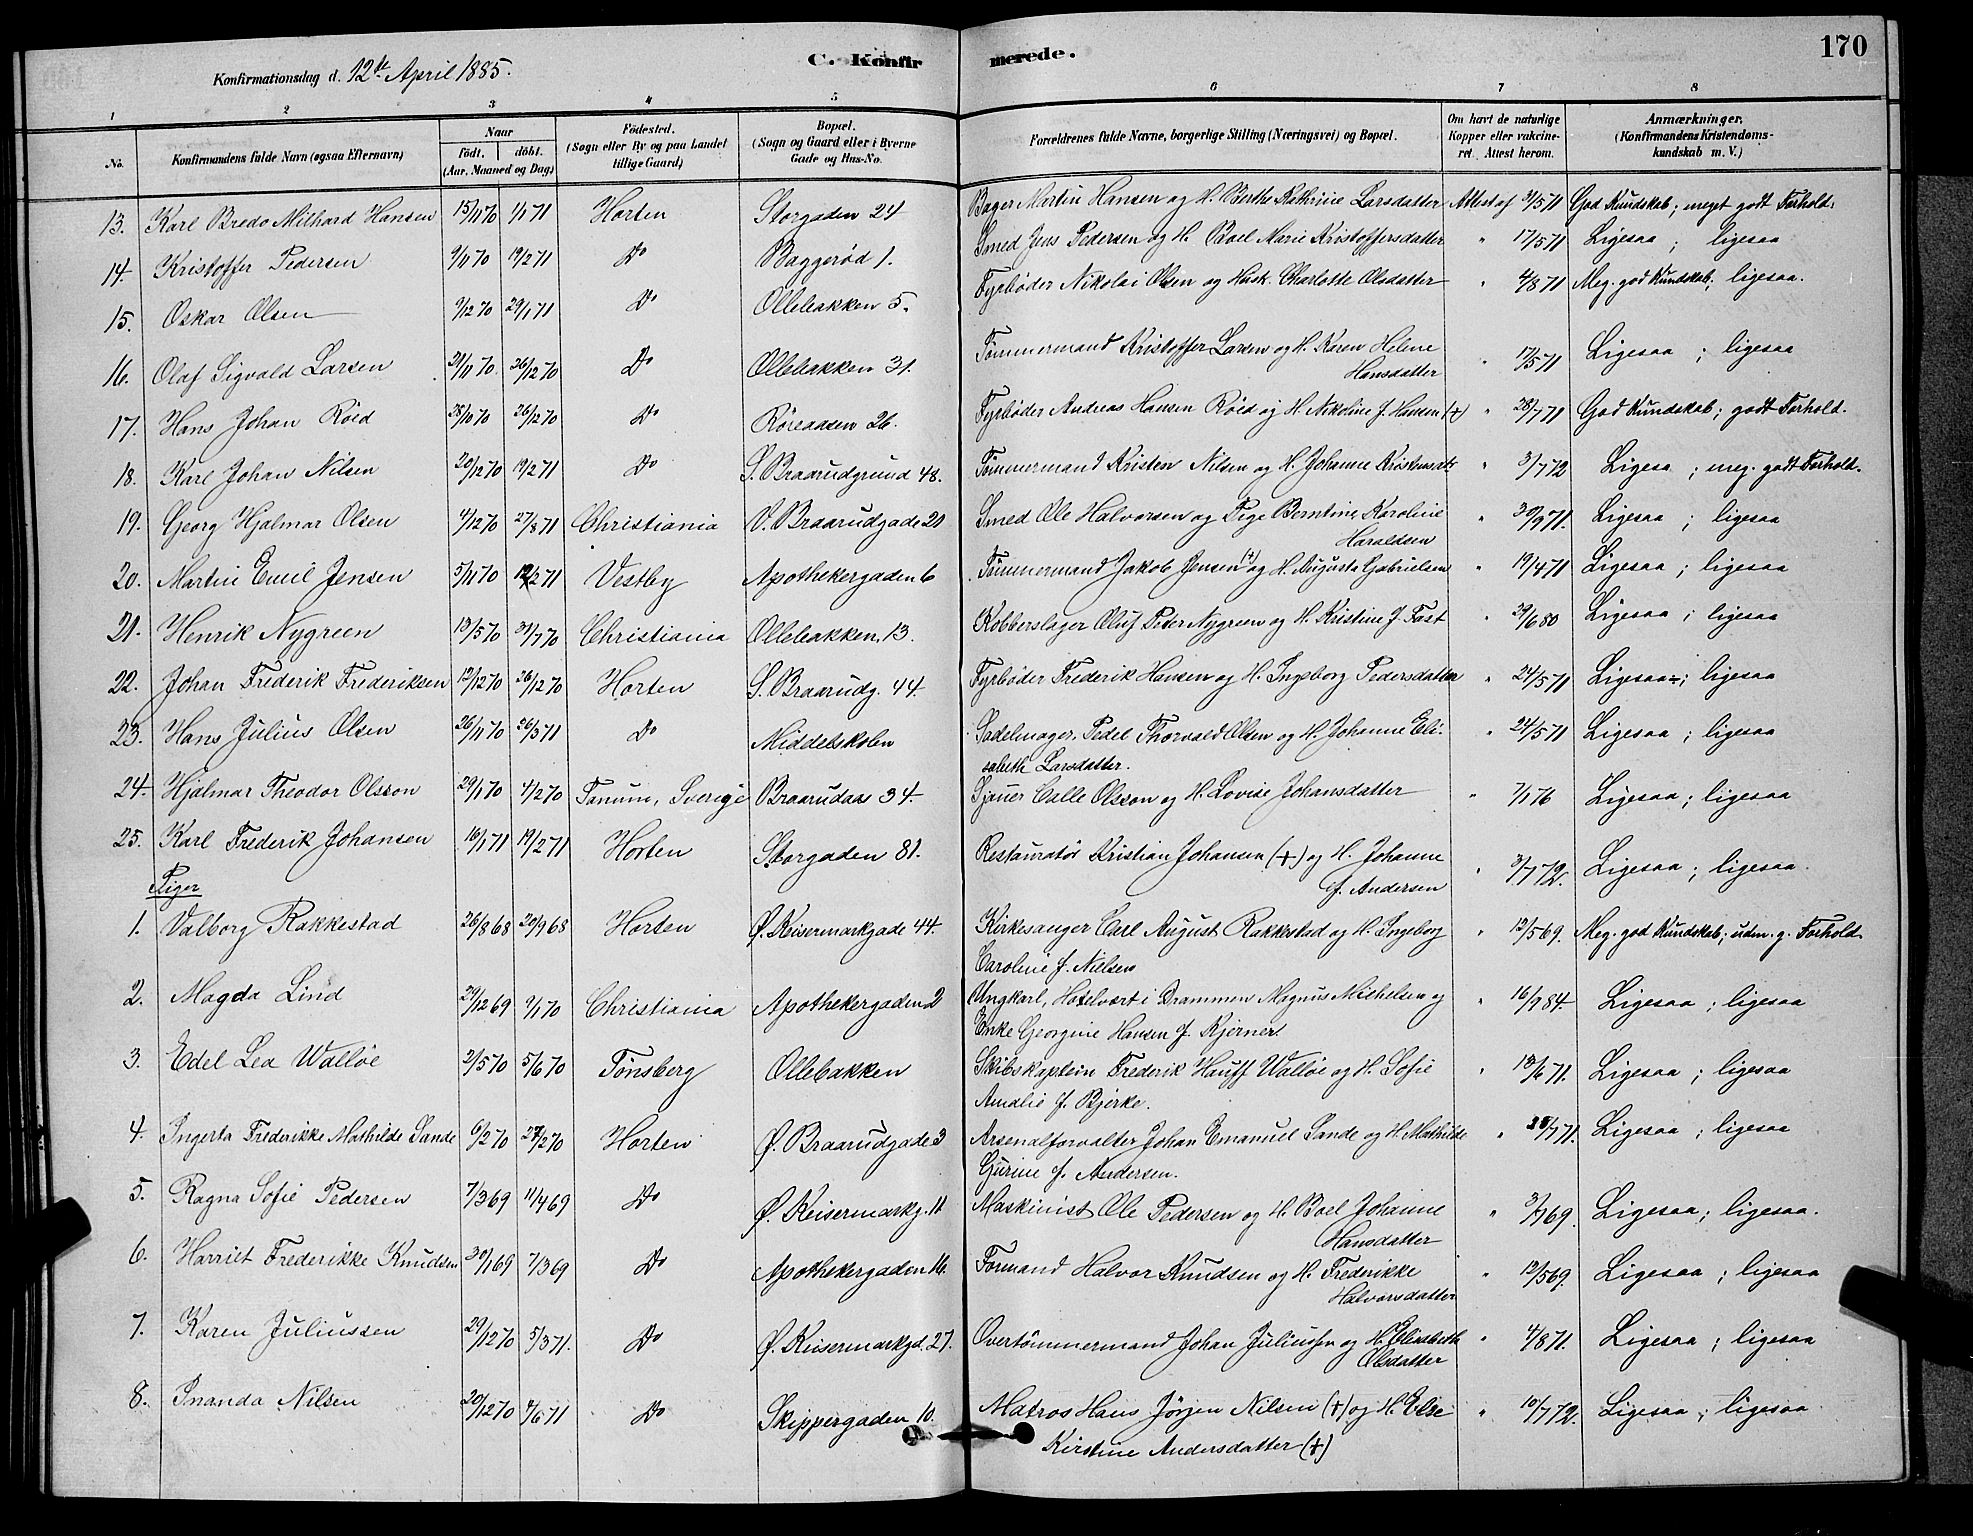 170
C. Konfirmerede.
Konfirmationsdag d. 12te April 1885.
1 2 3 4 5 6 7 8
No. Konfirmandens fulde Navn (ogsaa Efternavn) Naar födt. döbt. (Aar, Maaned og Dag) Födested. (Sogn eller By og paa Landet tillige Gaard) Bopæl. (Sogn og Gaard eller i Byerne Gade og Hus-No. Forældrenes fulde Navne, borgerlige Stilling (Næringsvei) og Bopæl. Om havt de naturlige Kopper eller vakcineret. Attest herom. Anmærkninger. (Konfirmandens Kristendomskundskab m. V.)
13. Karl Bredo Milhard Hansen 15/11 70 1/1 71 Horten Storgaden 24 Bager Martin Hansen og H. Berthe Kathrine Larsdatter Attest af 3/5 71 God Kundskab; meget godt Forhold.
14. Kristoffer Pedersen 9/11 70 19/2 71 Do Baggerød 1. Smed Jens Pedersen og H. Boel Marie Kristoffersdatter " 17/5 71 Ligesaa ; ligesaa
15. Oskar Olsen 9/12 70 29/1 71 Do Ollebakken 5. Fyrbøder Nikolai Olsen og Hust. Charlotte Olsdatter " 4/8 71 Meg. god Kundskab; ligesaa.
16. Olaf Sigvald Larsen 21/11 70. 26/12 70 Do Ollebakken 31. Tømmermand Kristoffer Larsen og H. Karen Helene
Hansdatter " 17/5 71 Ligesaa ; ligesaa
17. Hans Johan Röed 28/10 70 26/12 70 Do Röreaasen 26. Fyrbøder Andreas Hansen Röed og H. Nikoline f. Hansen (+) " 28/7 71 God Kundskab; godt Forhold.
18. Karl Johan Nilsen 20/12 70 19/2 71 Do S. Braarudgrund 48. Tömmermand Kristen Nilsen og H. Johanne Kristensdtr " 3/7 72 Ligesa ; meg. godt Forhold.
19. Georg Hjalmar Olsen 4/12 70 27/8 71 Christiania V. Braarudgade 20 Smed Ole Halvorsen og Pige Berntine Karoline
Haraldsen " 30/9 71. Ligesaa ; ligesaa
20. Martin Emil Jensen 5/11 70 12/2 71 Vestby Apothekergaden 6 Tømmermand Jakob Jensen (+) og H. Augusta Gabrielsen " 19/4 71 Ligesaa ; ligesaa
21. Henrik Nygreen 13/5 70 31/7 70 Christiania Ollebakken 13. Kobberslager Oluf Peter Nygreen og H. Kristine f. Fast " 29/6 80 Ligesaa ; ligesaa
22. Johan Frederik Frederiksen 12/12 70 26/12 70 Horten S. Braarudg. 44. Fyrbøder Frederik Hansen og H. Ingeborg Pedersdatter " 24/5 71 Ligesaa ; ligesaa
23. Hans Julius Olsen 26/11 70 26/3 71 Do Middelskolen Sadelmager, Pedel Thorvald Olsen og H. Johanne Eli-
sabeth Larsdatter. " 24/5 71 Ligesaa ; ligesaa
24. Hjalmar Theodor Olsson 29/1 70 4/2 70 Tanum, Sverige Braarudaas 34. Sjauer Calle Olsson og H. Lovise Johansdatter " 7/1 76 Ligesaa ; ligesaa
25. Karl Frederik Johansen 16/1 71 19/2 71 Horten Storgaden 81. Restauratör Kristian Johansen (+) og H. Johanne
f. Andersen " 3/7 72. Ligesaa ; ligesaa.
Piger
1. Valborg Rakkestad 26/8 68 20/9 68 Horten Ø. Keisermarkgade 44. Kirkesanger Carl August Rakkestad og H. Ingeborg
Caroline f. Nielsen " 12/5 69. Meg. god Kundskab; udm. g. Forhold.
2. Magda Lind 29/12 69 9/1 70 Christiania Apothekergaden 2 Ungkarl, Hotelvært i Drammen Magnus Michelsen og
Enke Georgine Hansen f. Kjerner " 16/9 84. Ligesaa ; ligesaa
3. Edel Lea Walløe 2/5 70 5/6 70 Tönsberg Ollebakken Skibskaptein Frederik Hauff Walløe og H. Sofie
Amalie f. Bjerke. " 13/6 71. Ligesaa ; ligesaa
4. Ingerta Frederikke Mathilde Sande 6/2 70 27/2 70 Horten Ø. Braarudgade 3 Arsenalforvalter Johan Emanuel Sande og H. Mathilde
Gurine f. Andersen. " /7 71. Ligesaa ; ligesaa
5. Ragna Sofie Pedersen 7/3 69 11/4 69 Do Ø. Keisermarkg. 11 Maskinist Ole Pedersen og H. Boel Johanne
Hansdatter " 3/7 69. Ligesaa ; ligesaa.
6. Harriet Frederikke Knudsen 30/1 69 7/3 69 Do Apothekergaden 16. Formand Halvor Knudsen og H. Frederikke
Halvorsdatter " 12/5 69. Ligesaa ; ligesaa
7. Karen Juliussen 29/12 70 5/3 71. Do Ø. Keisermarkgd. 27. Overtömmermand Johan Juliussen og H. Elisabeth
Olsdatter " 4/8 71. Ligesaa ; ligesaa
8. Inanda Nilsen 20/12 70 4/6 71 Do Skippergaden 10. Matros Hans Jörgen Nilsen (+) og H. Else
Kirstine Andersdatter (+) " 10/7 72. Ligesaa ; ligesaa